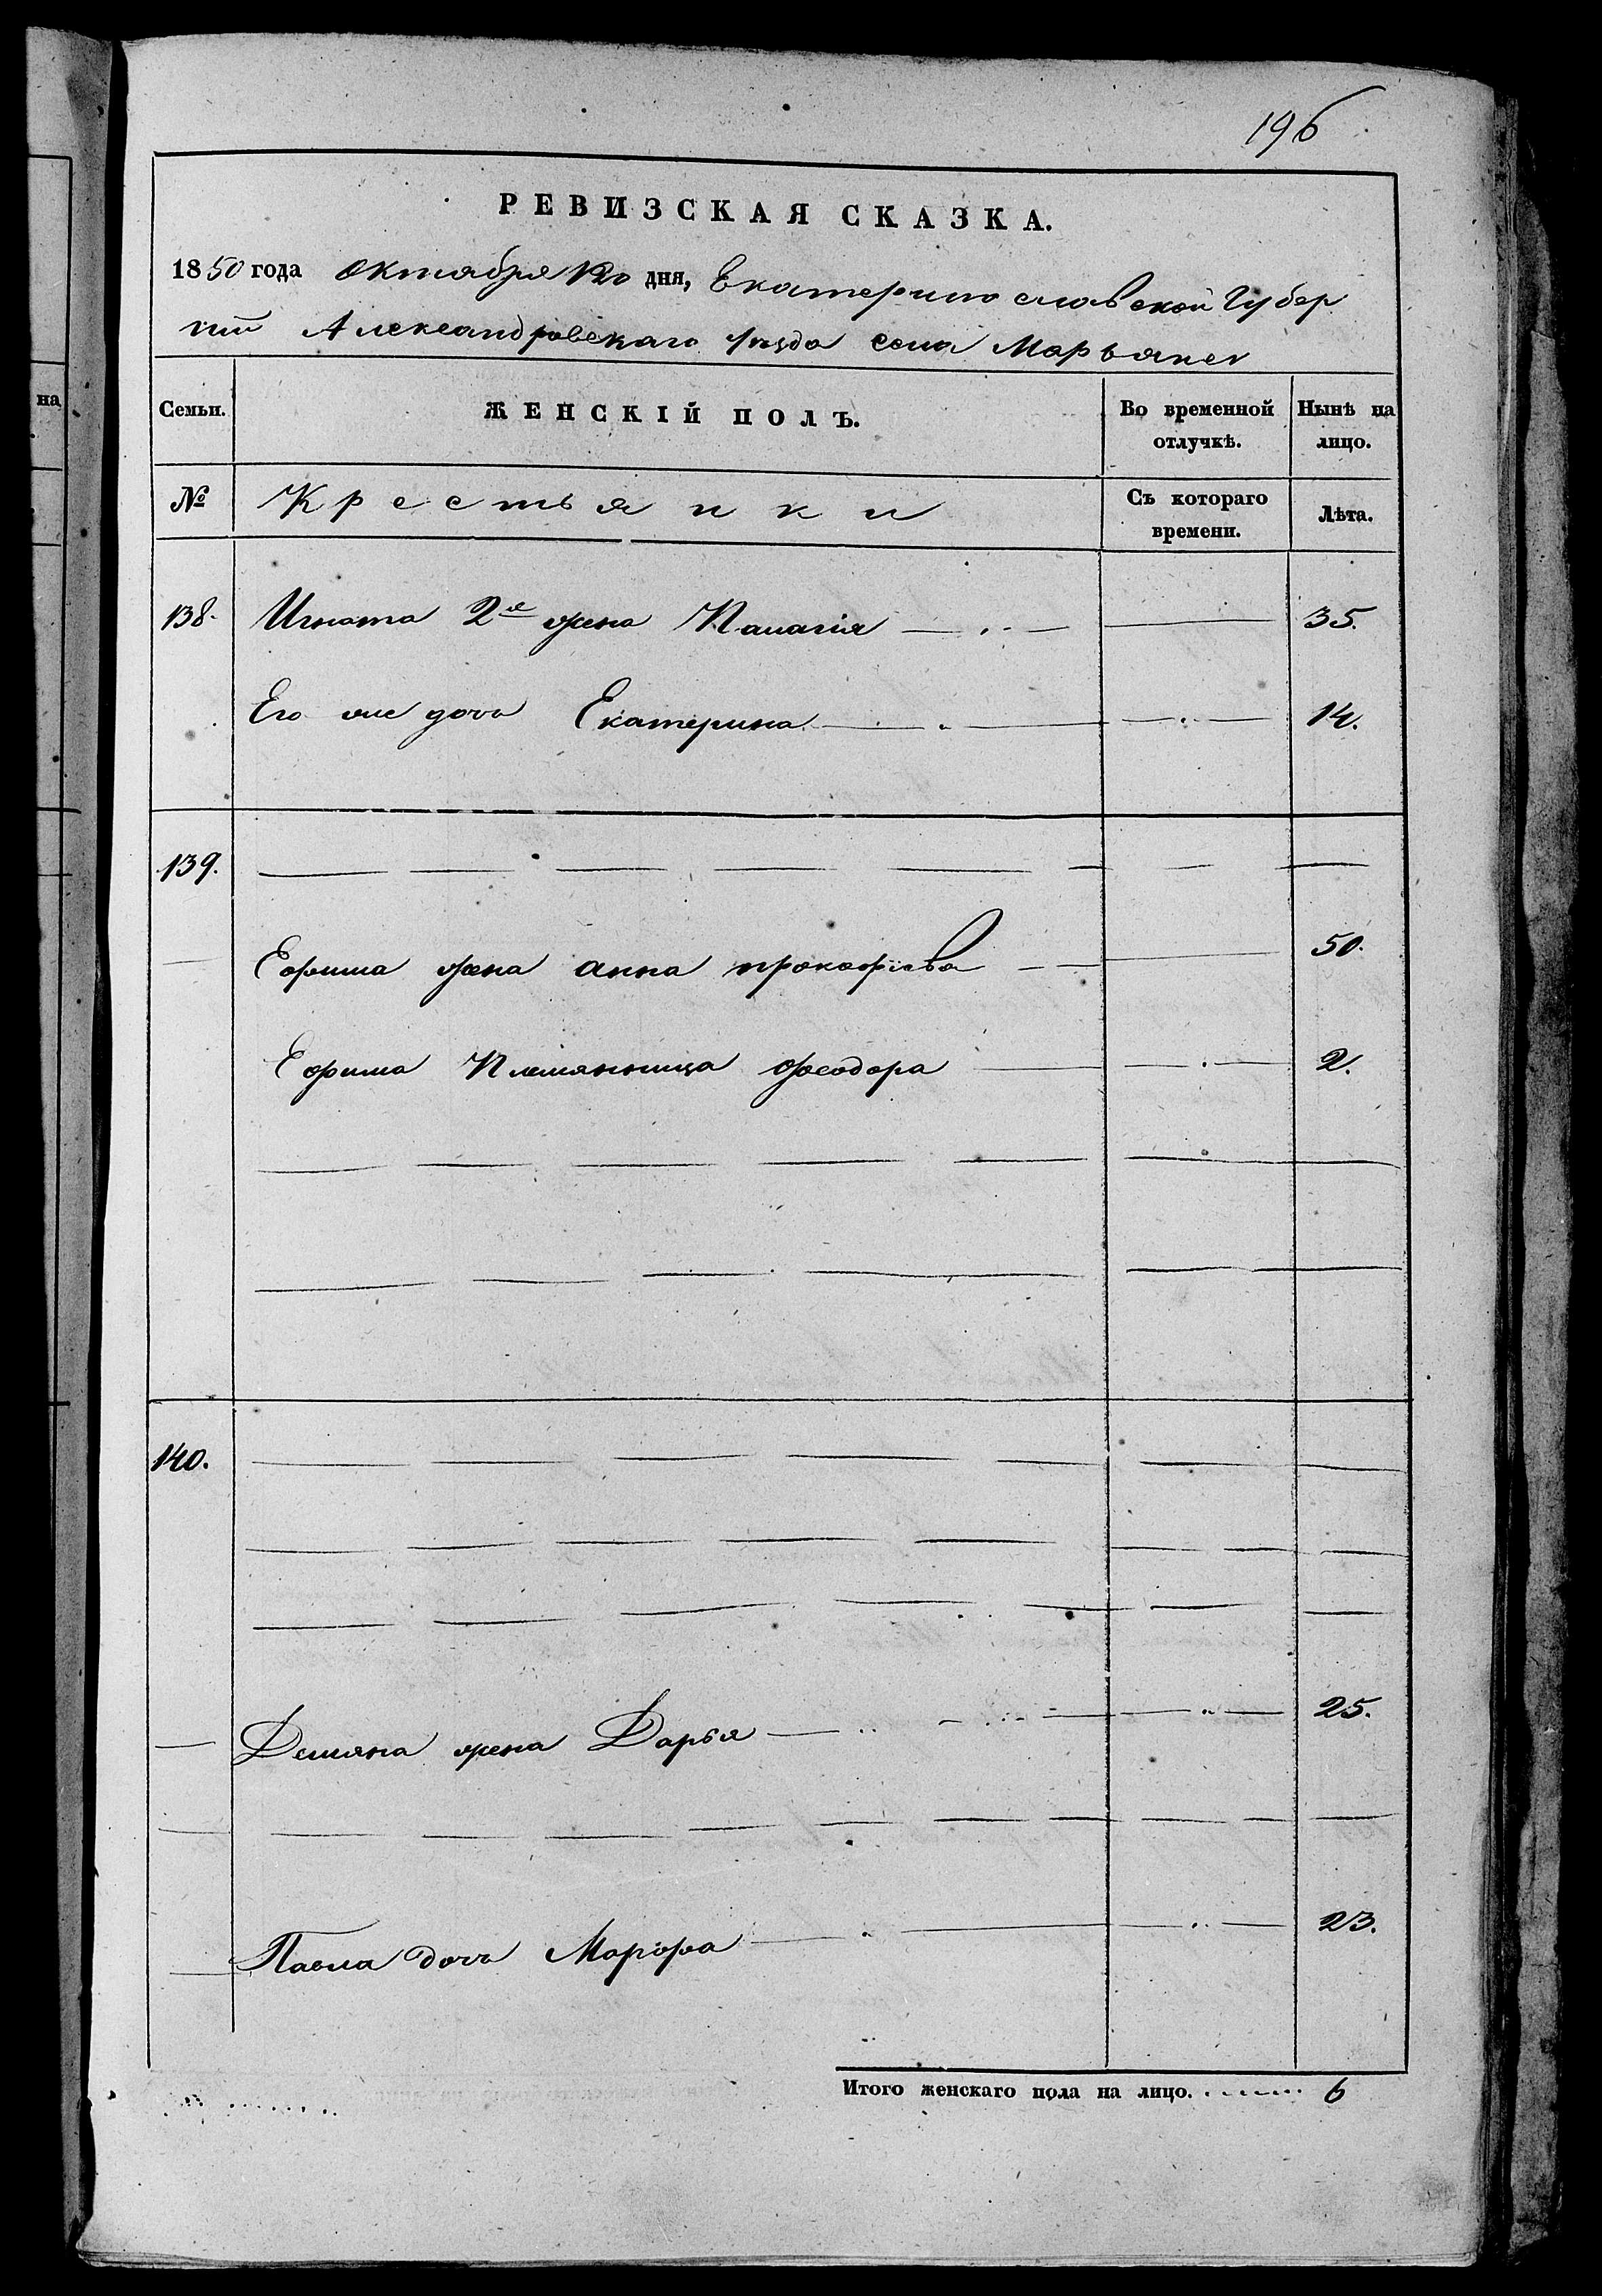 196
РЕВИЗСКАЯ СКАЗКА.
1850 года Октября 12го дня, Екатеринославской Губер
нии Александровскаго уѣзда села Марьянки
на
Семьи.
ЖЕНСКІЙ ПОЛЪ.
Во временной отлучкѣ.
Нынѣ на лицо.
№
Крестьянки
Съ котораго времени.
Лѣта.
138. Игната 2я жена Палагія 35.
Его же дочь Екатерина 14.
139.
Ефима жена анна прокофіева 50.
Ефима Племянница Феодора 2.
140.
Демяна жена Дарья 25.
Павла дочь Марфа 23.
Итого женскаго пола на лицо. 6